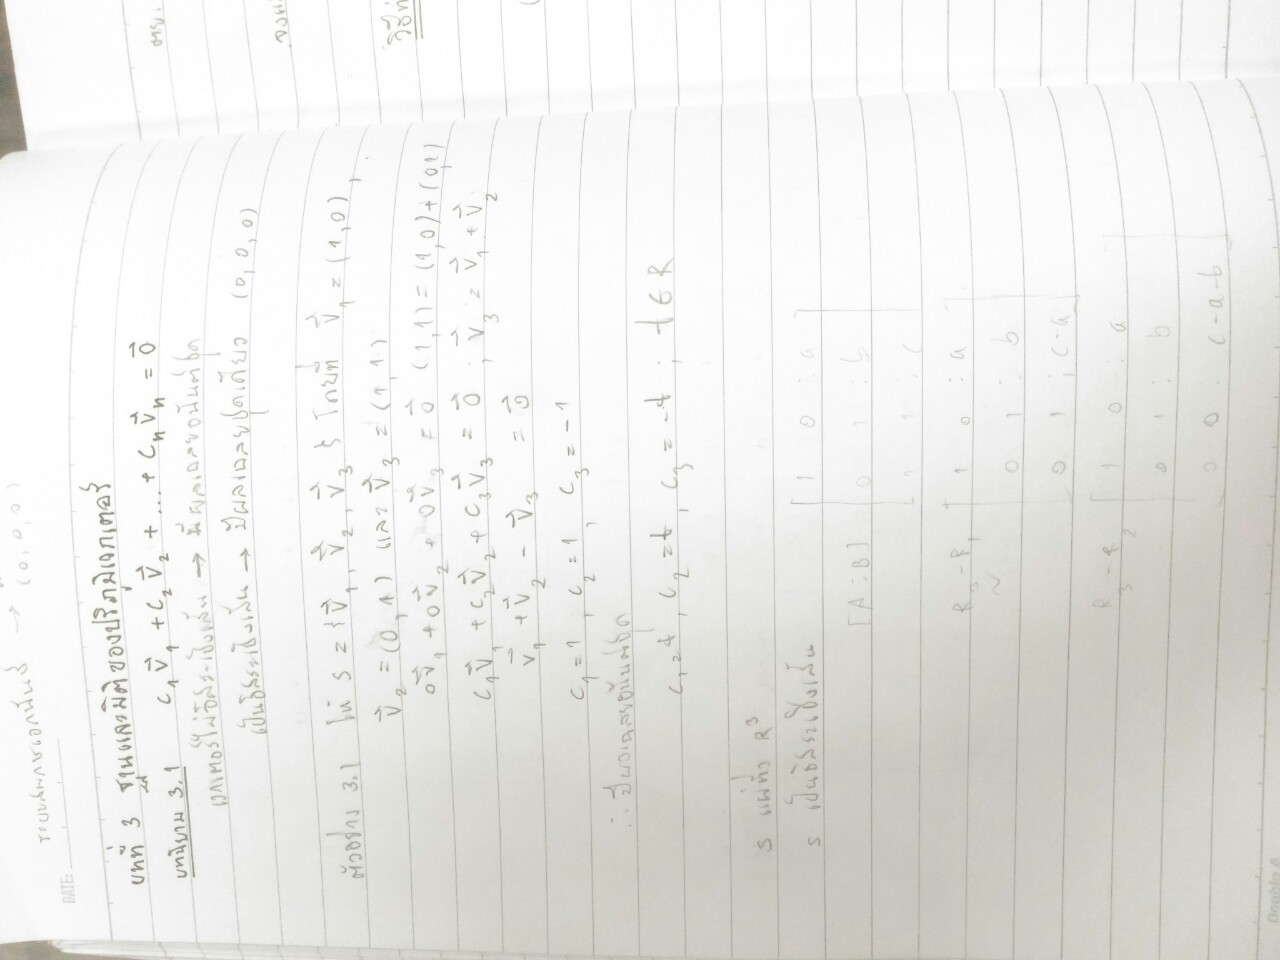 ระบบสมการเอกพันธ์ → (0,0,0)
DATE:
บทที่ 3 ฐานและมิติของปริภูมิเวกเตอร์
บทนิยาม 3.1 c₁v⃗₁ + c₂v⃗₂ + ... + cₙv⃗ₙ = 0⃗
เวกเตอร์ไม่อิสระเชิงเส้น → มีผลเฉลยอนันต์ชุด
เป็นอิสระเชิงเส้น → มีผลเฉลยชุดเดียว (0,0,0)
ตัวอย่าง 3.1 ให้ S = {v⃗₁, v⃗₂, v⃗₃} โดยที่ v⃗₁ = (1,0),
v⃗₂ = (0,1) และ v⃗₃ = (1,1)
0v⃗₁ + 0v⃗₂ + 0v⃗₃ = 0⃗ (1,1) = (1,0)+(0,1)
c₁v⃗₁ + c₂v⃗₂ + c₃v⃗₃ = 0⃗ ; v⃗₃ = v⃗₁ + v⃗₂
v⃗₁ + v⃗₂ - v⃗₃ = 0⃗
c₁ = 1, c₂ = 1, c₃ = -1
∴ มีผลเฉลยอนันต์ชุด
c₁ = t, c₂ = t, c₃ = -t ; t ∈ R
S แผ่ทั่ว R³
S เป็นอิสระเชิงเส้น
[1 0 : a
[A : B] 0 1 : b
1 1 : c]
R₃-R₁ ~ [1 0 : a
0 1 : b
0 1 : c-a]
R₃-R₂ [1 0 : a
0 1 : b
0 0 : c-a-b]
Double A
ตย.
วิธีทำ